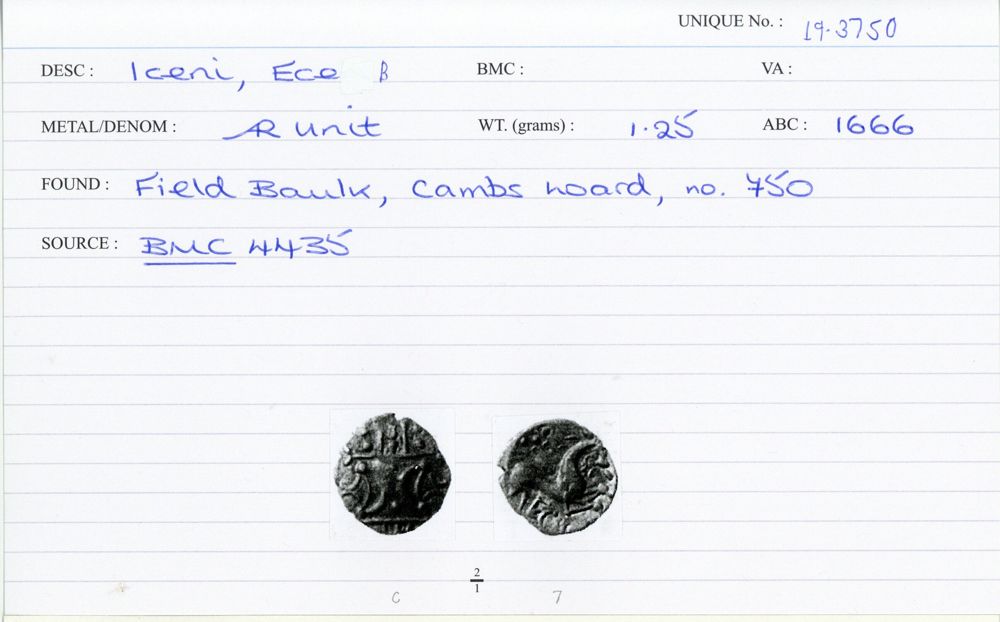 UNIQUE No. : 19.3750
DESC : Iceni, Ece B BMC : VA :
METAL/DENOM : AR unit WT. (grams) : 1.25 ABC : 1666
FOUND : Field Baulk, Cambs hoard, no. 750
SOURCE : BMC 4435
2
1
C 7